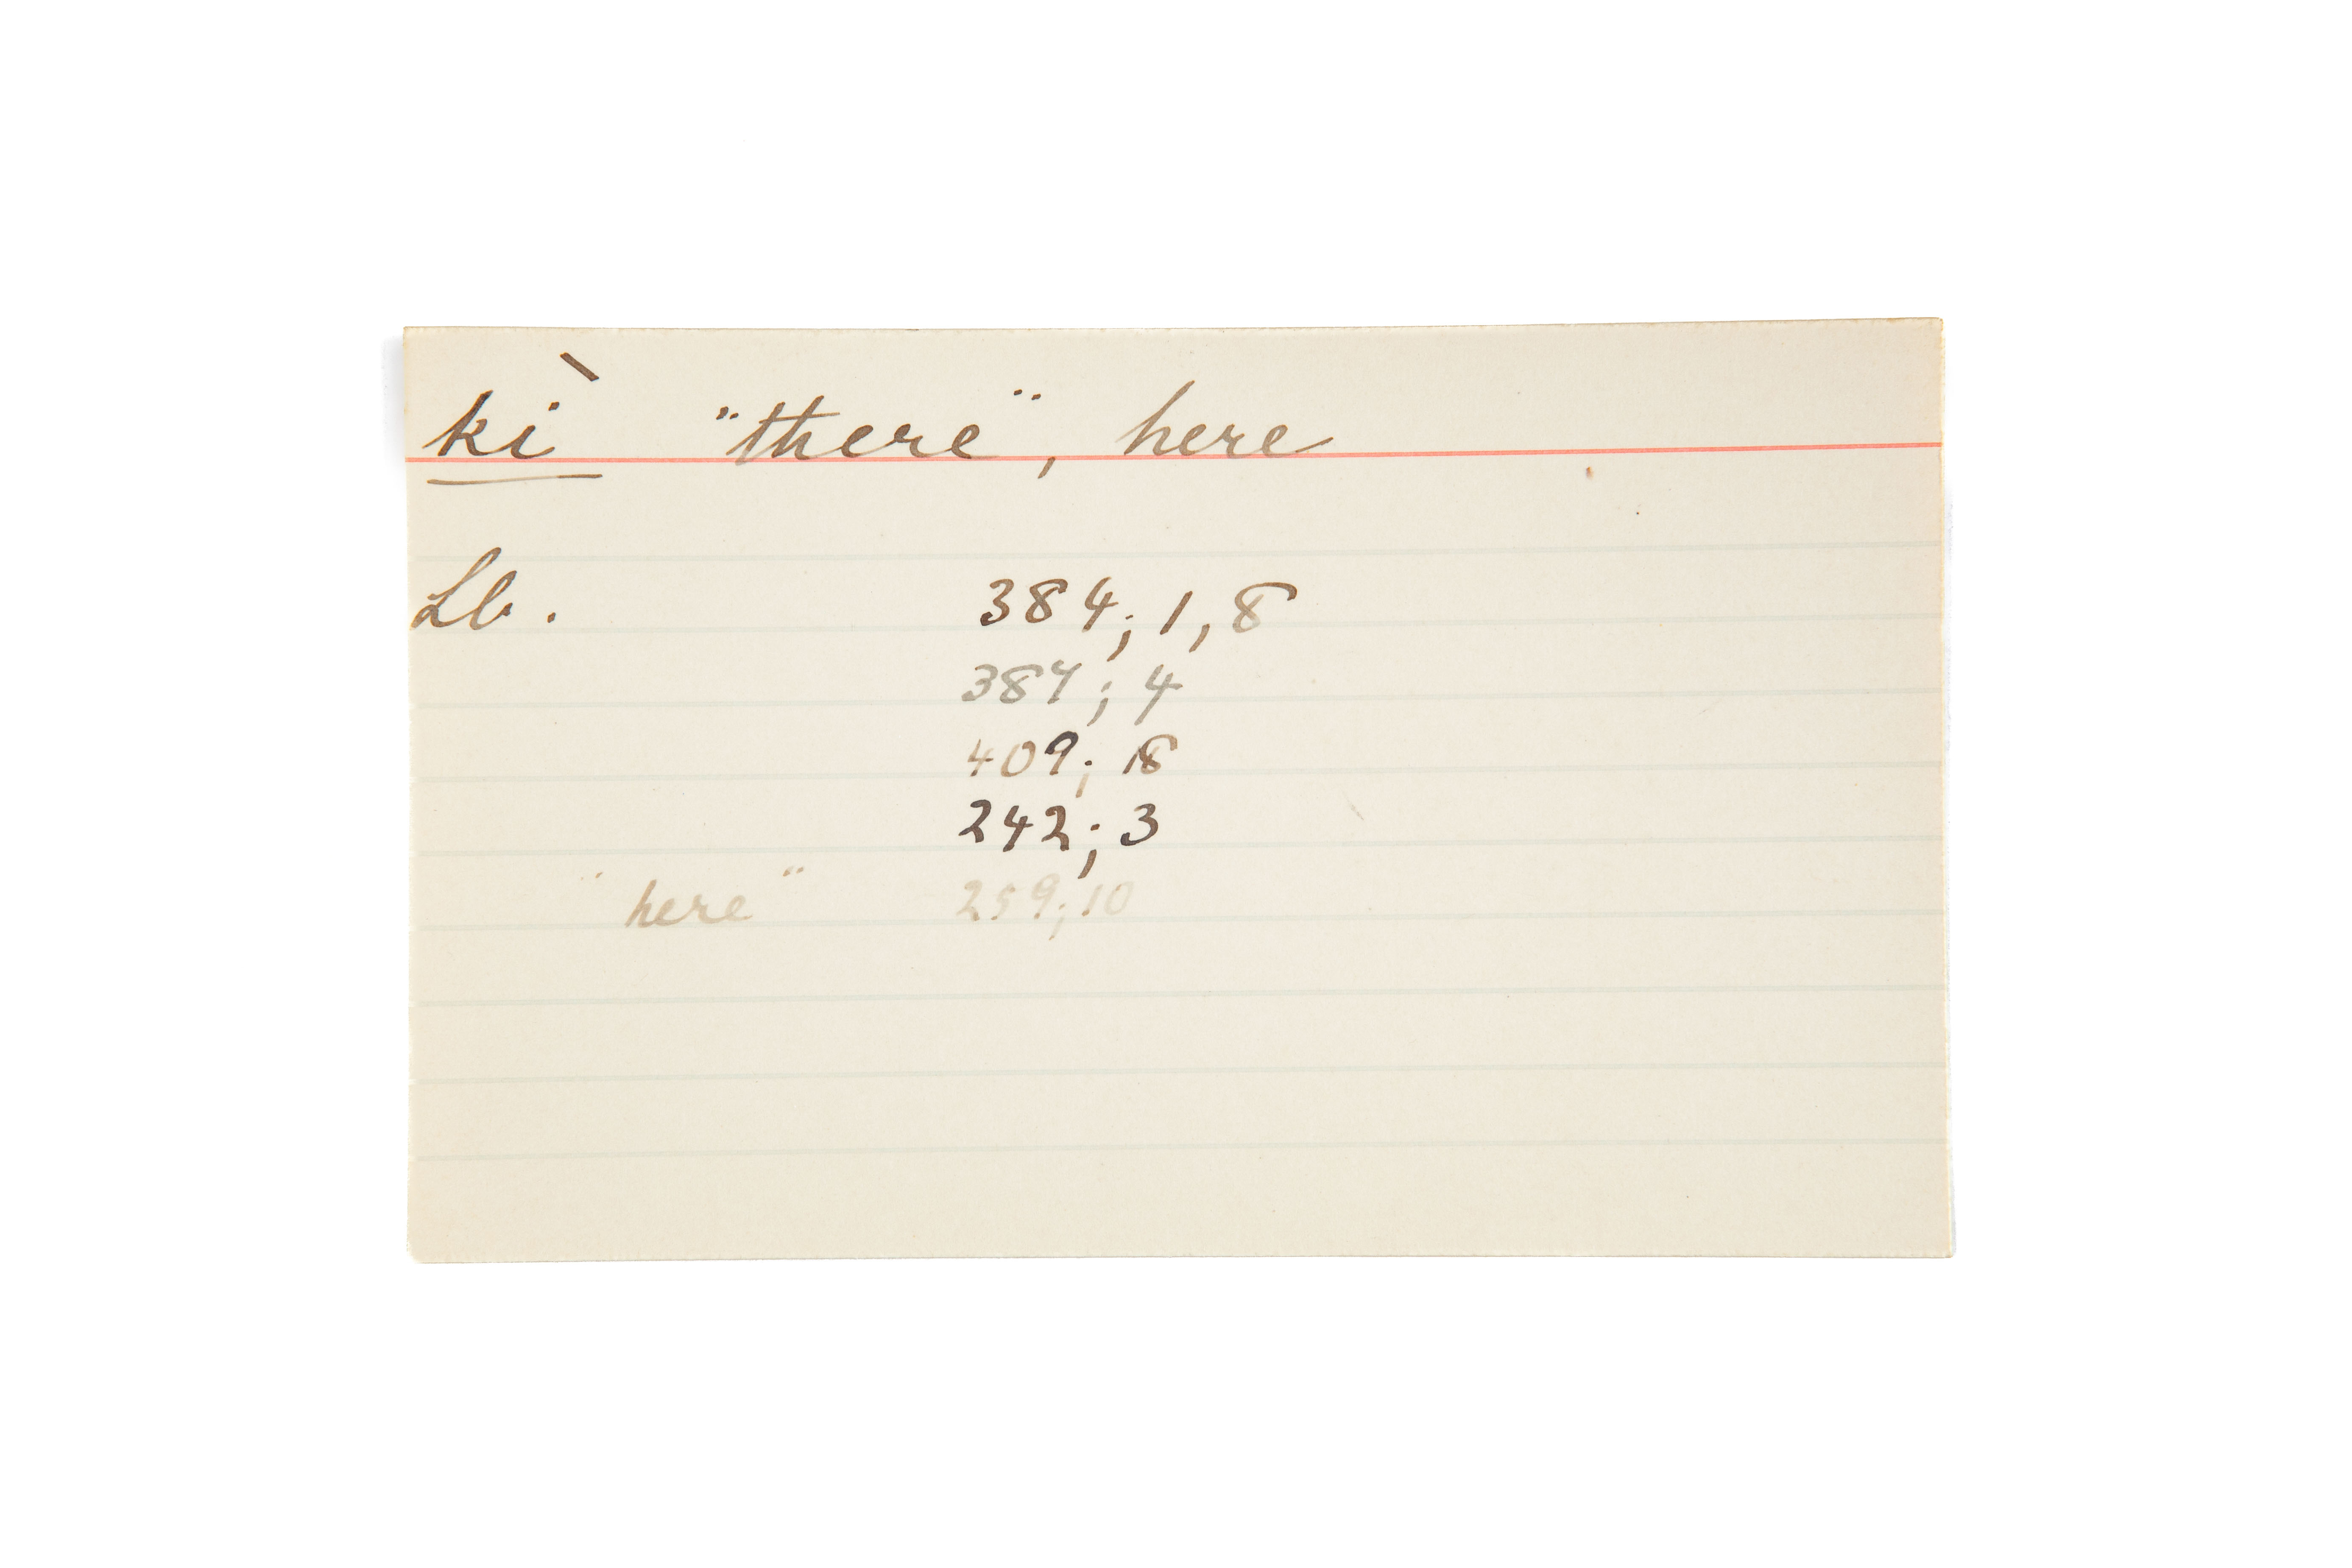 kì "there", here
Lb. 384; 1, 8
387; 4
409; 18
242; 3
"here" 259; 10